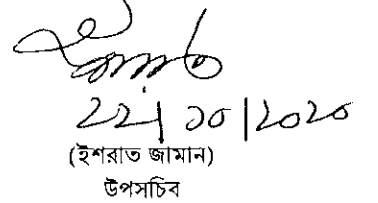 ২২|১০|২০২০
(ইশরাত জামান)
উপসচিব